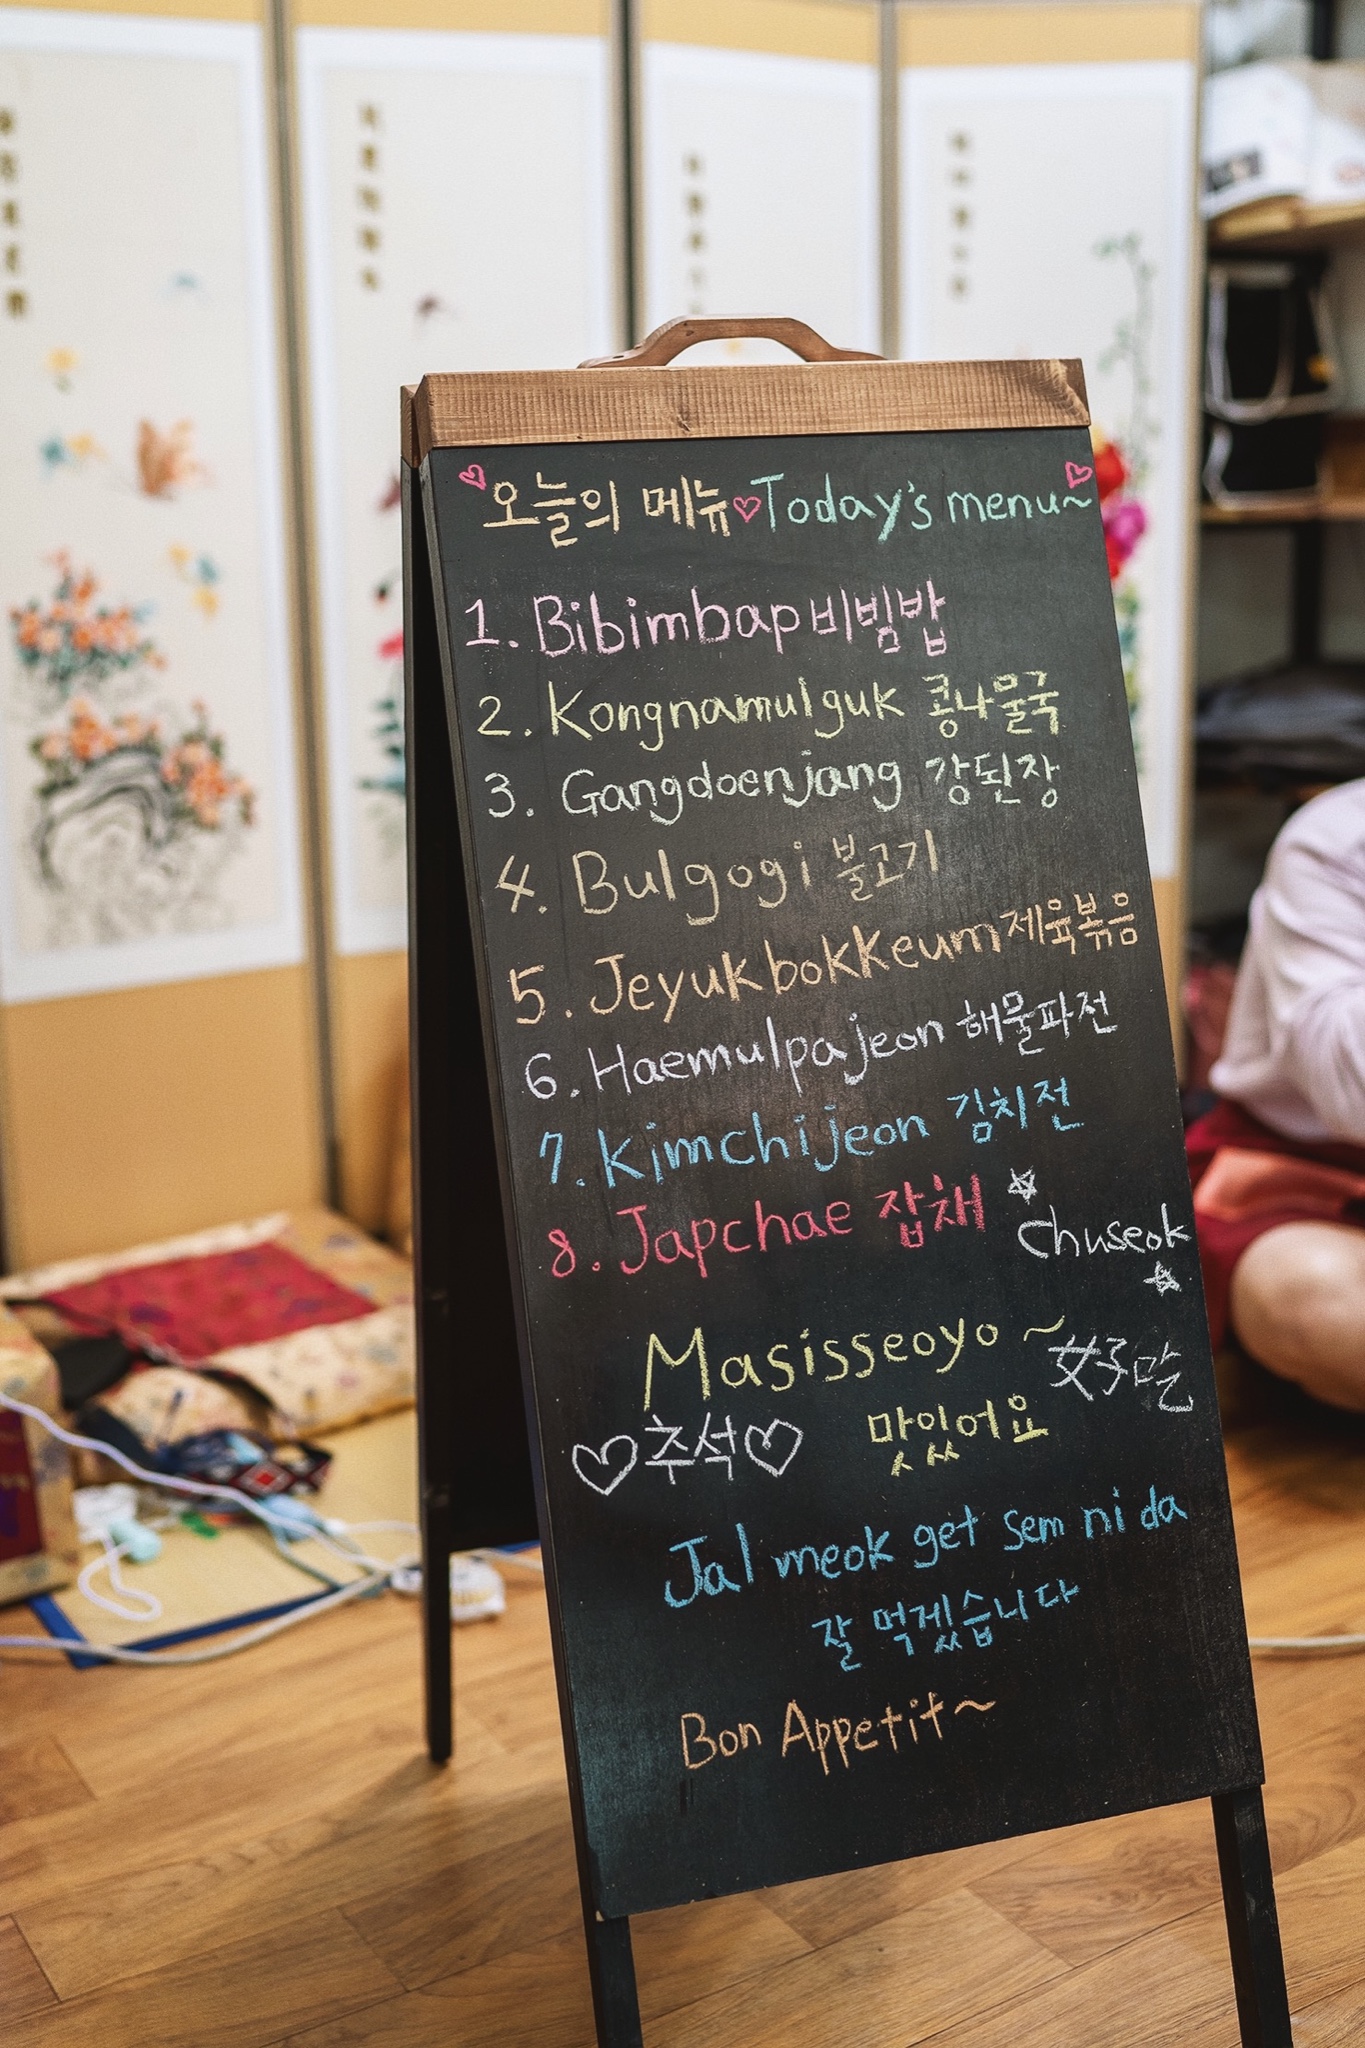 오늘의 메뉴 Today's menu~
1. Bibimbap 비빔밥
2. Kongnamulguk 콩나물국
3. Gangdoenjang 강된장
4. Bulgogi 불고기
5. Jeyukbokkeum 제육볶음
6. Haemulpajeon 해물파전
7. Kimchijeon 김치전
8. Japchae 잡채
Chuseok
Masisseoyo ~
추석
맛있어요
Jal meok get sem ni da
잘 먹겠습니다
Bon Appetit~